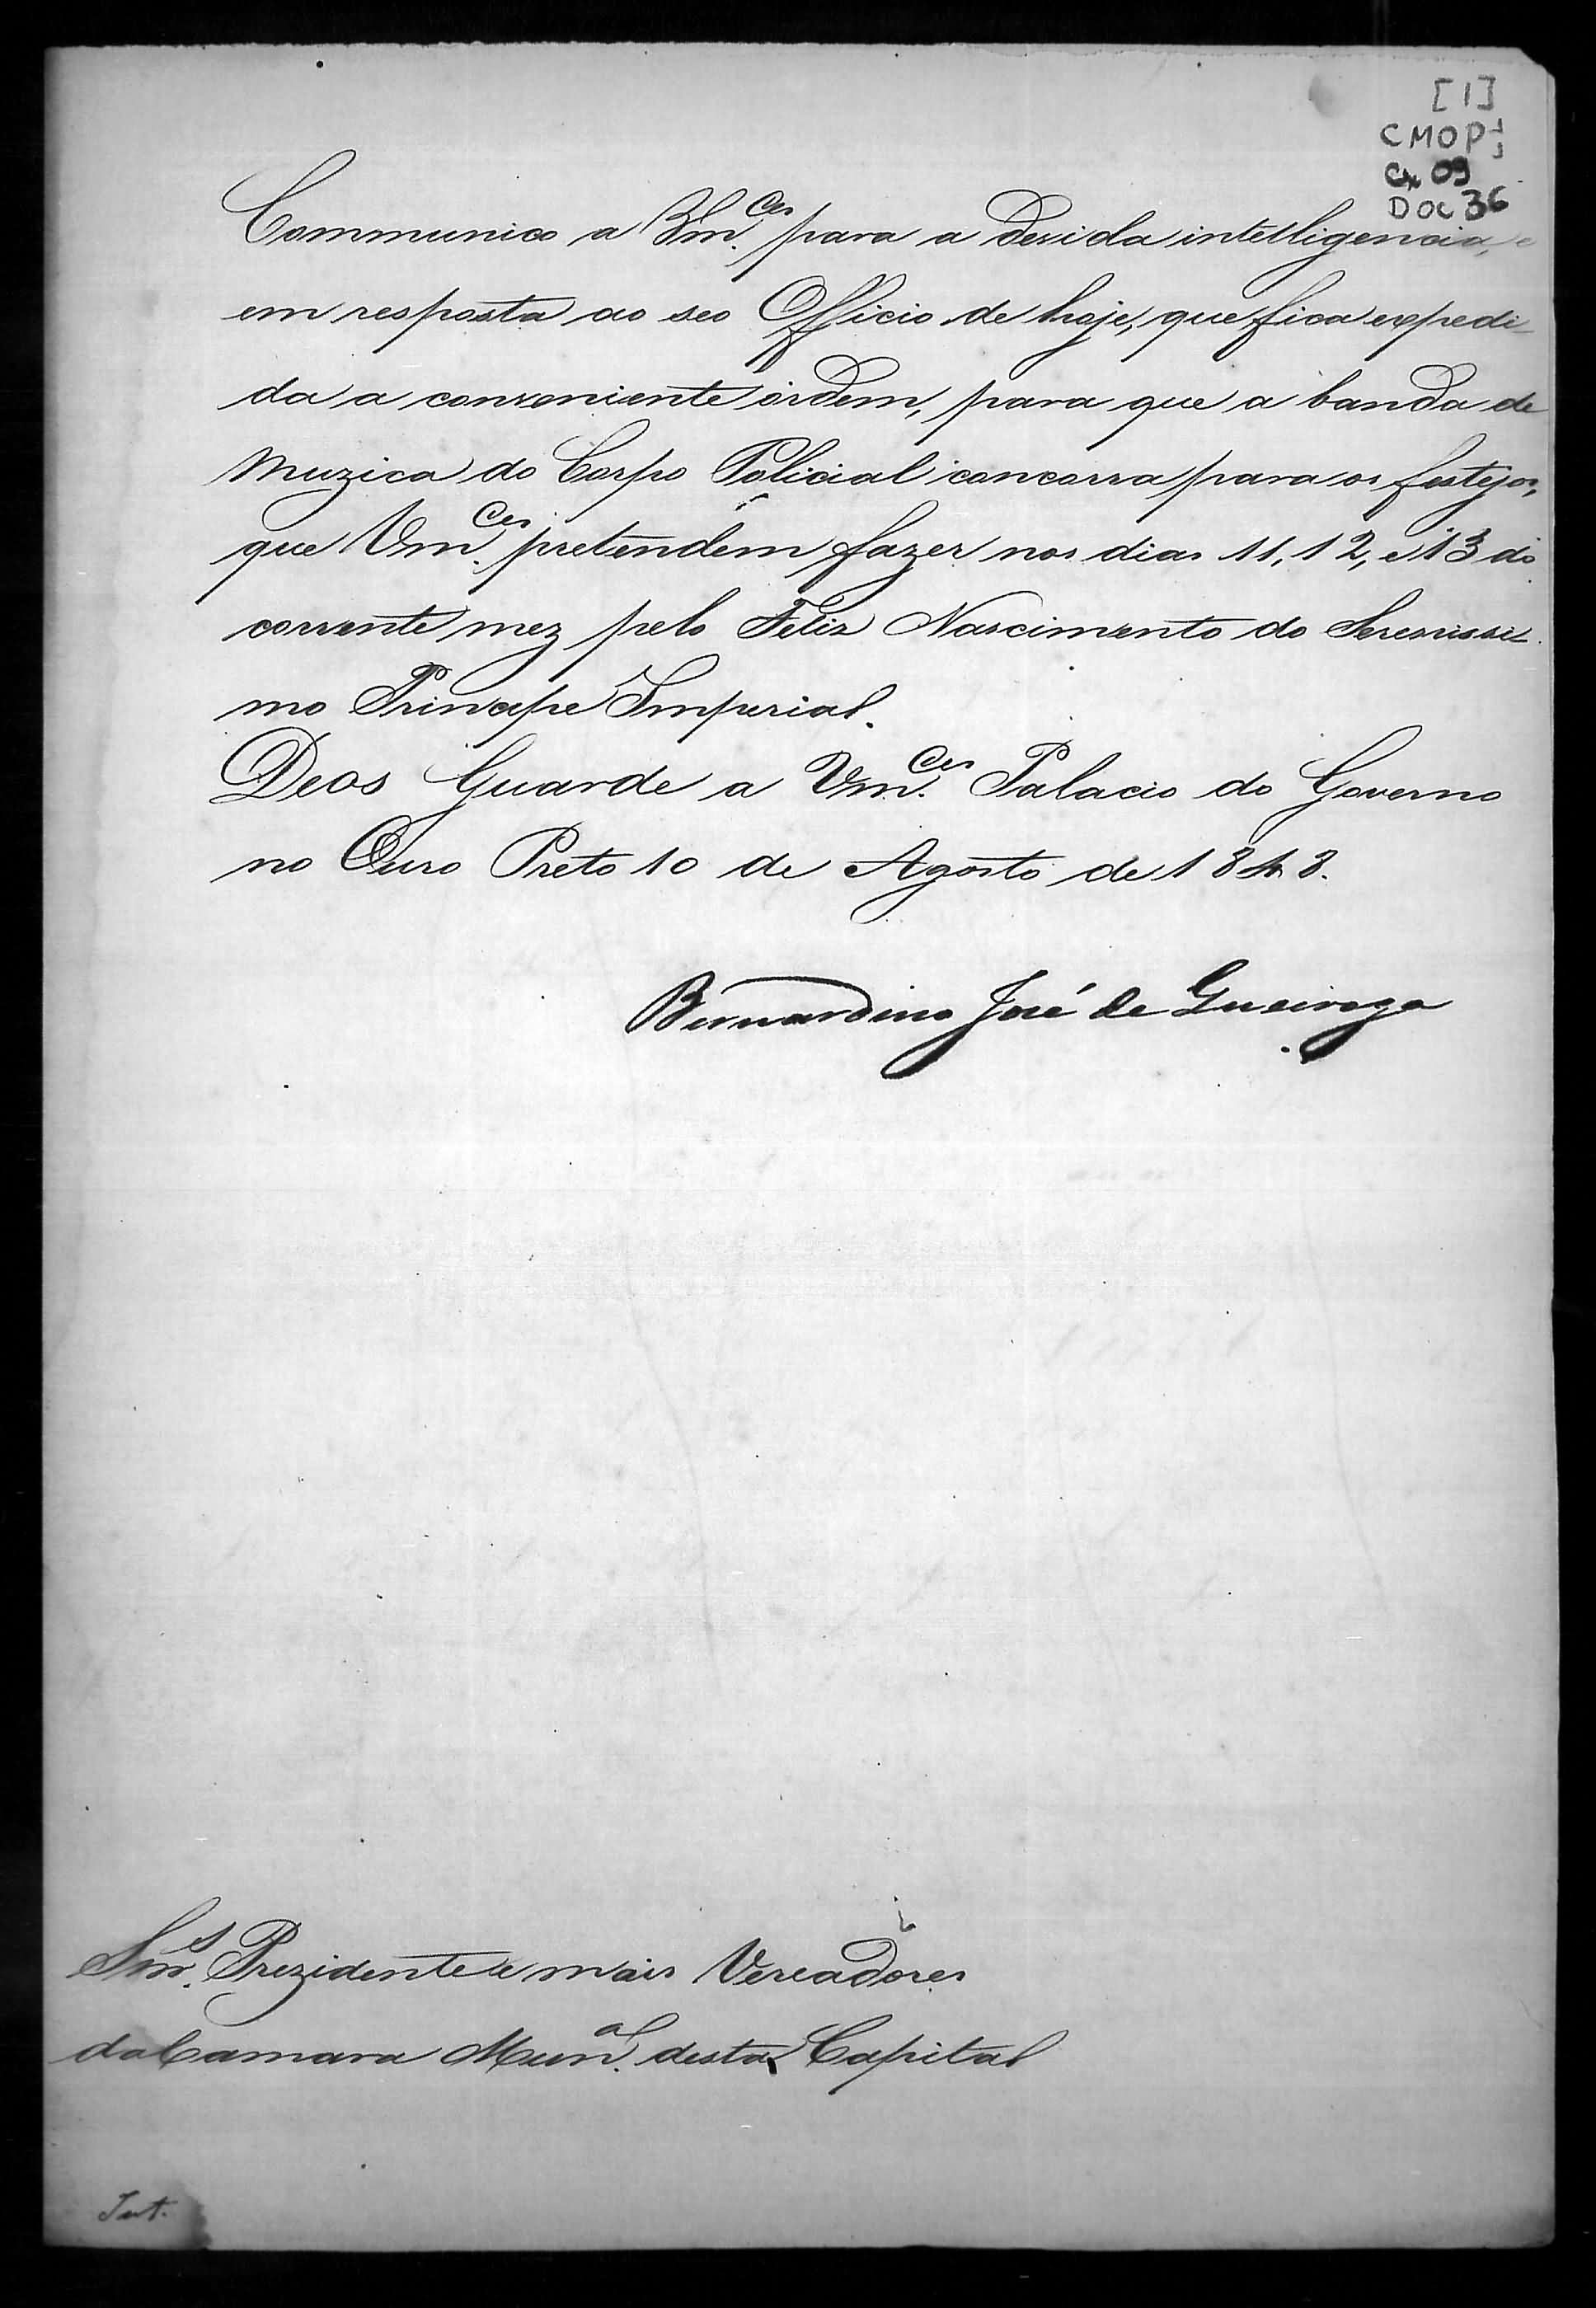 [1]
CMOP
Cx 09
DOC 36
Communico a Vm.ces para a devida intelligencia, e
em resposta ao seo Officio de hoje, que fica expedi-
da a conveniente ordem, para que a banda de
Muzica do Corpo Policial concorra para os festejos,
que Vm.ces pretendem fazer nos dias 11, 12, e 13 do
corrente mez pelo Feliz Nascimento do Serenissi-
mo Principe Imperial.
Deos Guarde a Vm.ces Palacio do Governo
no Ouro Preto 10 de Agosto de 1848.
Bernardino José de Queiroga
Snr.s Prezidente e mais Vereadores
da Camara Mun.al desta Capital